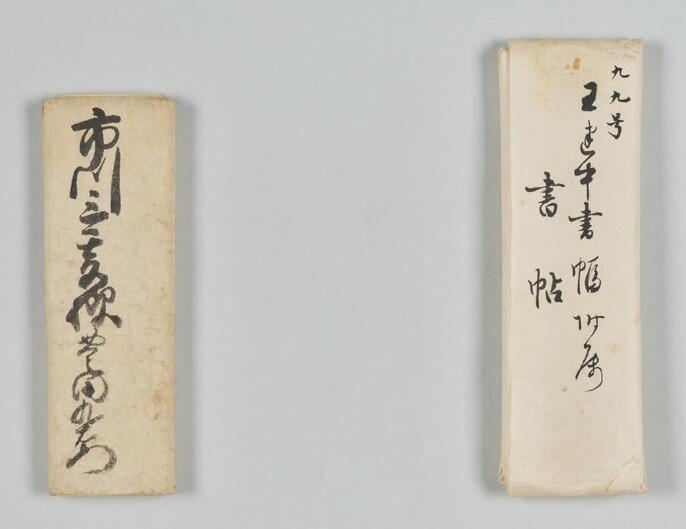 九九号
王建中書幅附属
書帖
市川三亥様